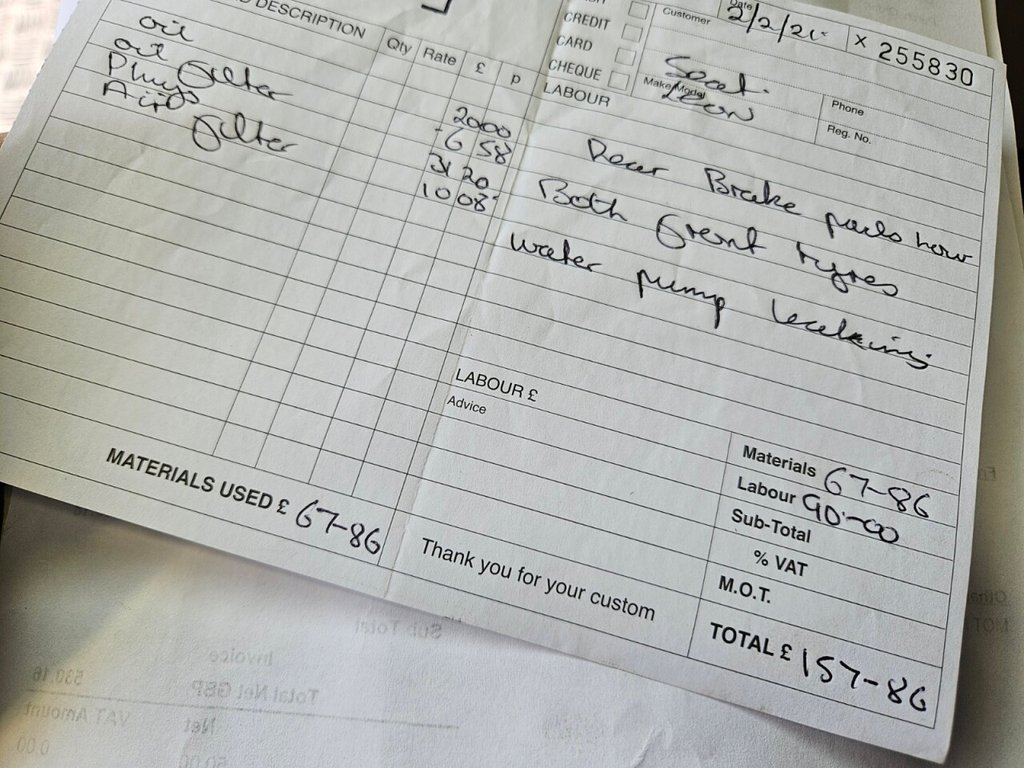 DESCRIPTION Qty Rate £ p
oil 20 00
oil filter 6 58
Plugs 31 20
Air filter 10 08
MATERIALS USED £ 67-86
CREDIT
CARD
CHEQUE
Customer
Date 2/2/21
X 255830
Seat.
Make/Model Leon
Phone
Reg. No.
LABOUR
Rear Brake pads now
Both front tyres
water pump leaking
LABOUR £
Advice
Materials 67-86
Labour 90-00
Sub-Total
% VAT
M.O.T.
TOTAL £ 157-86
Thank you for your custom
Sub Total
Invoice
Total Net GBP 530.16
Net VAT Amount
0.00